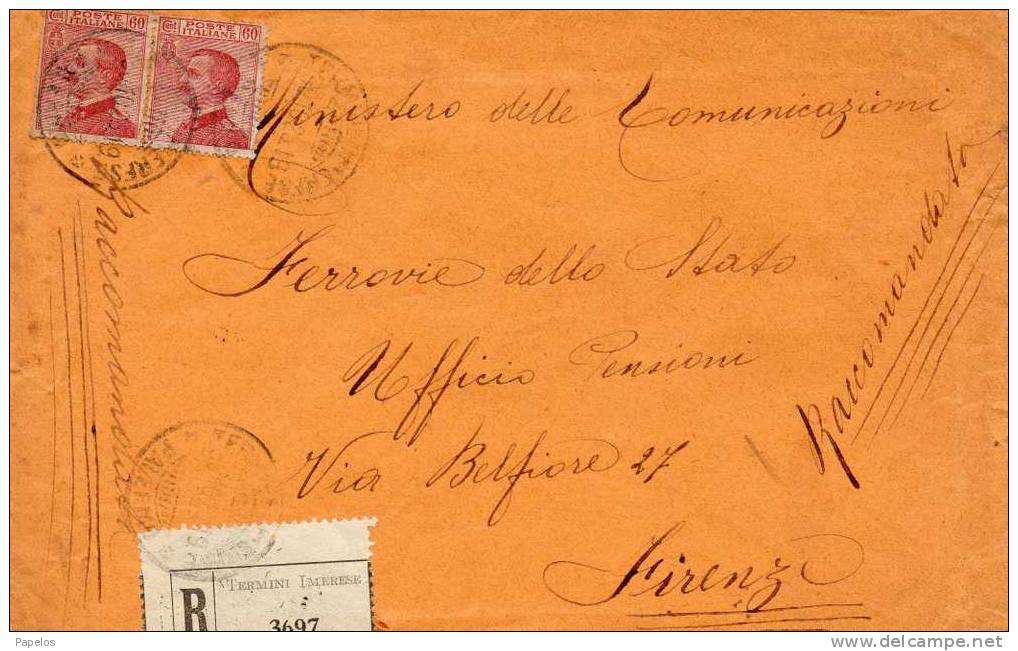 Cent POSTE ITALIANE 60
Cent POSTE ITALIANE 60
Ministero delle Comunicazioni
Ferrovie dello Stato
Ufficio Pensioni
Via Belfiore 27
Firenze
Raccomandata
Raccomandata
R
TERMINI IMERESE
3697
Papelos
www.delcampe.net